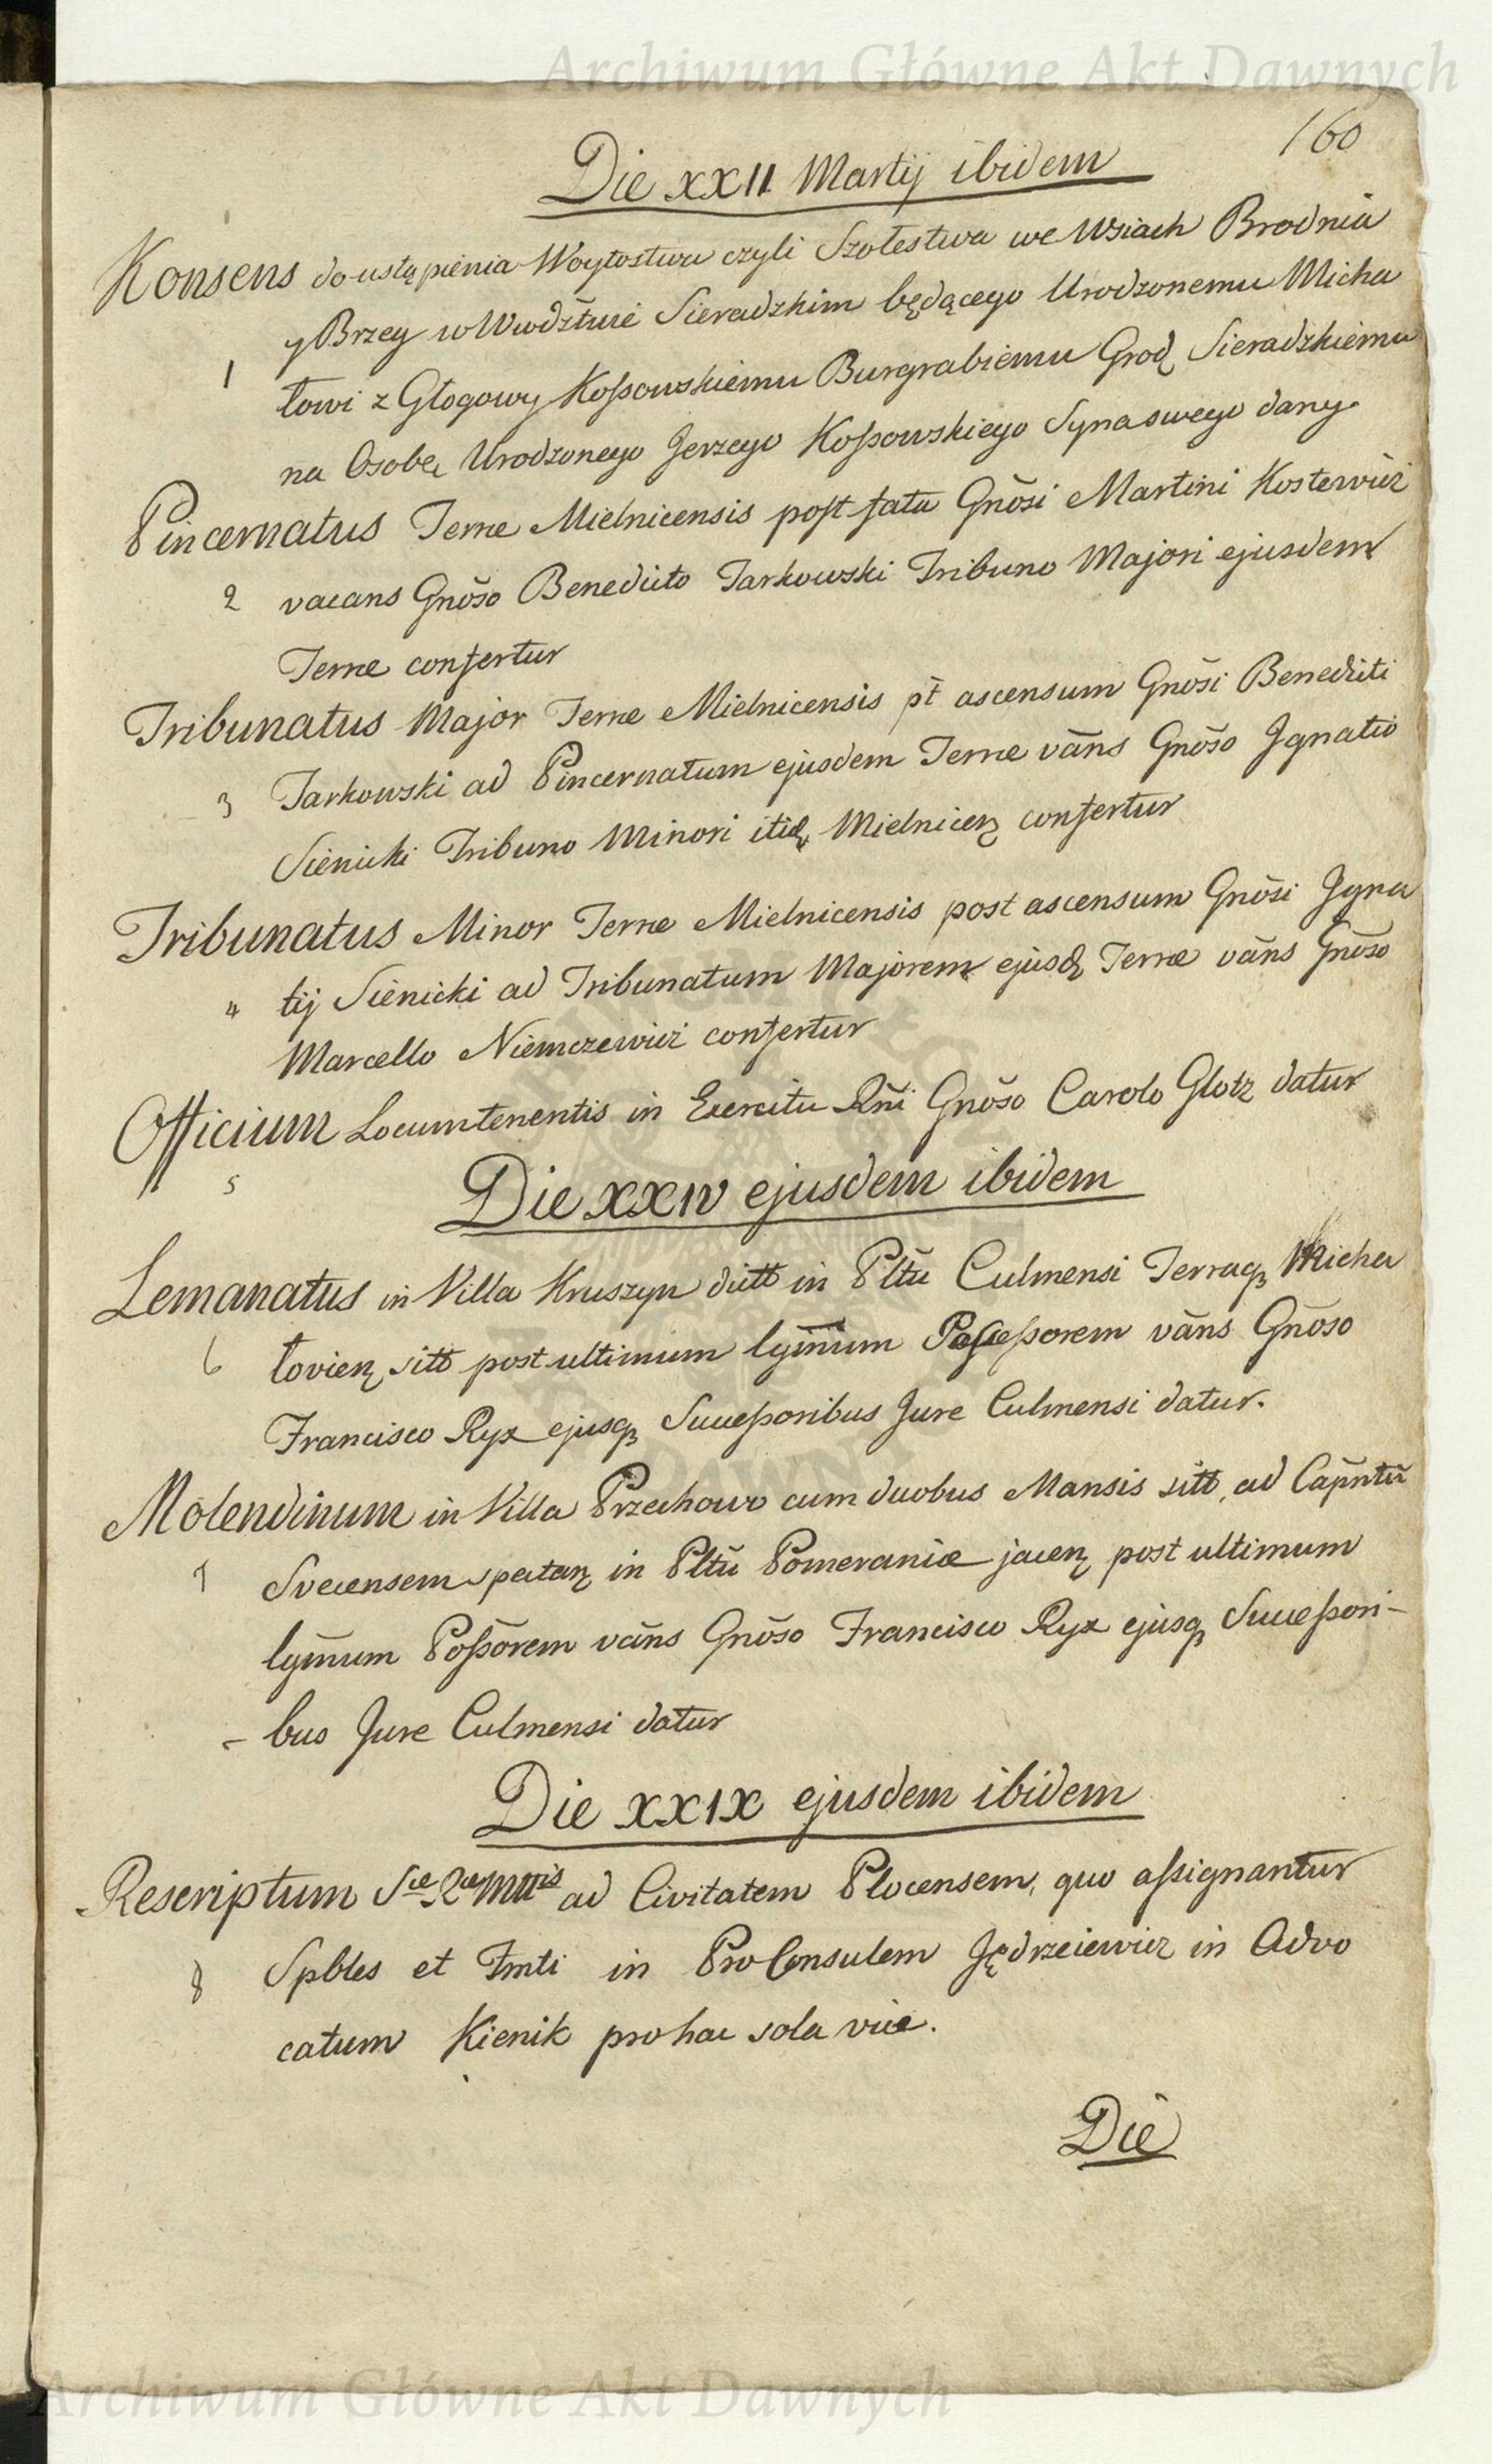 Archiwum Główne Akt Dawnych
160
Die XXII Martij ibidem
Konsens do ustąpienia Woytostwa czyli Szołestwa we Wsiach Brodnia
y Brzeg w Wwdztwie Sieradzkim będącego Urodzonemu Micha
1
łowi z Głogowy Koßowskiemu Burgrabiemu Grodz Sieradzkiemu
na Osobę Urodzonego Jerzego Koßowskiego Syna swego dany.
Pincernatus Terræ Mielnicensis post fata Gnõsi Martini Kosterwicz
2 vacans Gnõso Benedicto Tarkowski Tribuno Majori ejusdem
Terræ confertur
Tribunatus Major Terræ Mielnicensis pt̃ ascensum Gnõsi Benedicti
3 Tarkowski ad Pincernatum ejusdem Terræ vãns Gnõso Ignatio
Sienicki Tribuno Minori itid. Mielnicen confertur
Tribunatus Minor Terræ Mielnicensis post ascensum Gnõsi Igna
4 tij Sienicki ad Tribunatum Majorem ejusd. Terræ vãns Gnõso
Marcello Niemczewicz confertur
Officium Locumtenentis in Exercitu Rñi Gnõso Carolo Glotz datur
5
Die XXIV ejusdem ibidem
Lemanatus in Villa Kruszyn dicta in Pltũ Culmensi Terraq Micha
6 łovien sitt post ultimum lgm̃um Possessorem vãns Gnõso
Francisco Ryx ejusq Successoribus Jure Culmensi datur.
Molendinum in Villa Przechowo cum duobus Mansis sitt, ad Capñtũ
7 Svecensem spectan in Pltũ Pomeraniæ jacen post ultimum
lgm̃um Poßõrem vãns Gnõso Francisco Ryx ejusq Succeßori-
- bus Jure Culmensi datur
Die XXIX ejusdem ibidem
Rescriptum Sæ Ræ Mttis ad Civitatem Plocensem, quo aßignantur
8 Spbles et Fmti in ProConsulem Jędrzeiewicz in Advo
catum Kienik pro hac sola vice.
Die
Archiwum Główne Akt Dawnych